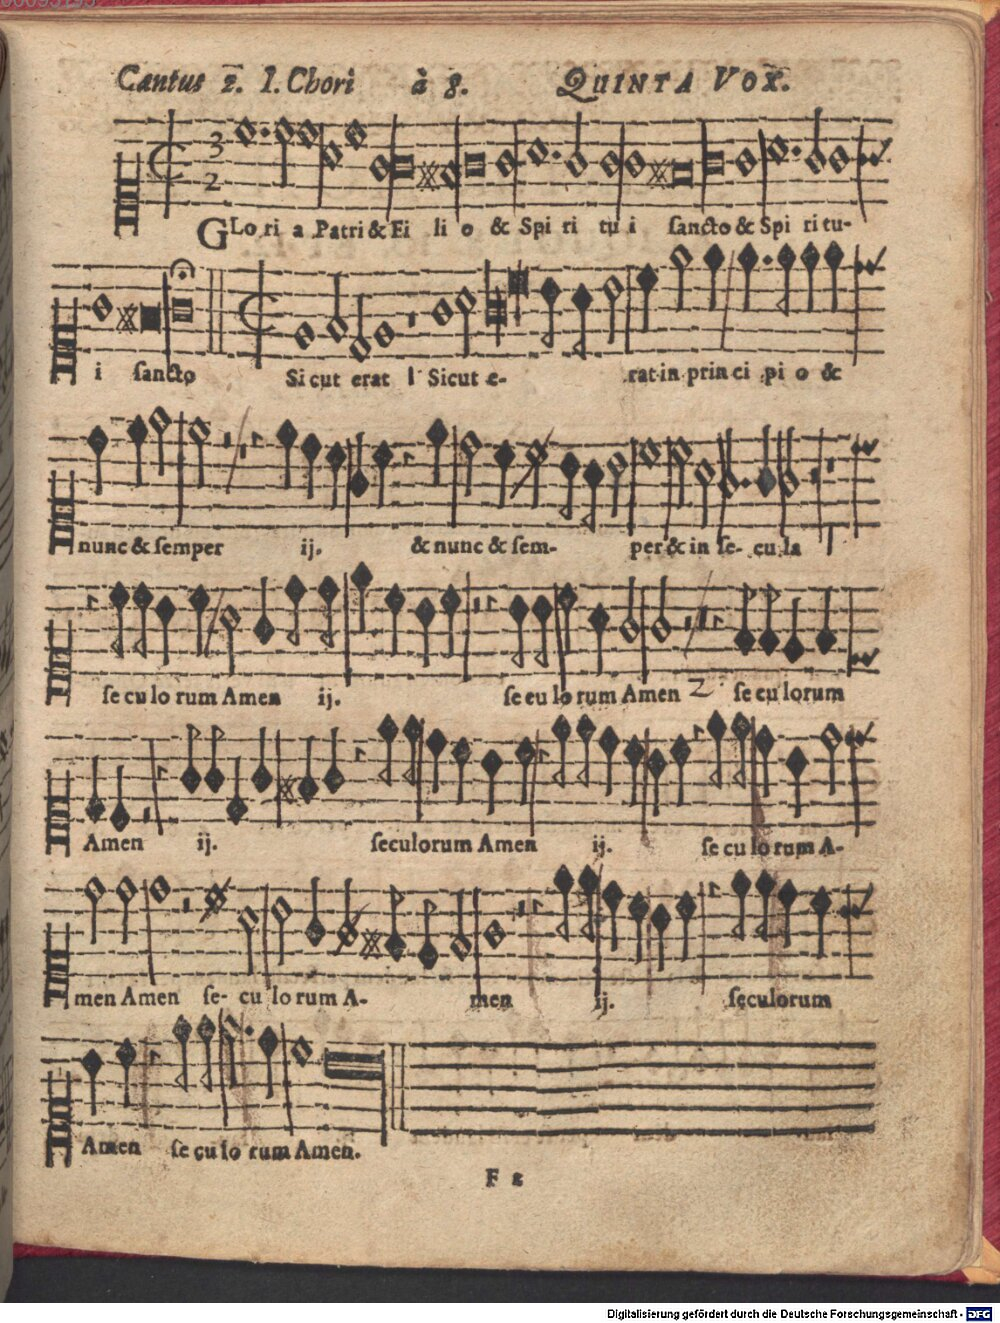 Cantus 2. 1. Chori à 8. QUINTA VOX.
3
2
GLo ri a Patri & Fi li o & Spi ri tu i sancto & Spi ri tu-
i sancto Si cut erat Sicut e- rat in prin ci pi o &
nunc & semper ij. & nunc & sem- per & in se- cu la
se cu lo rum Amen ij. se cu lo rum Amen 2 se cu lorum
Amen ij. seculorum Amen ij. se cu lo rum A-
men Amen se- cu lo rum A- men ij. seculorum
Amen se cu lo rum Amen.
F 2
Digitalisierung gefördert durch die Deutsche Forschungsgemeinschaft - DFG